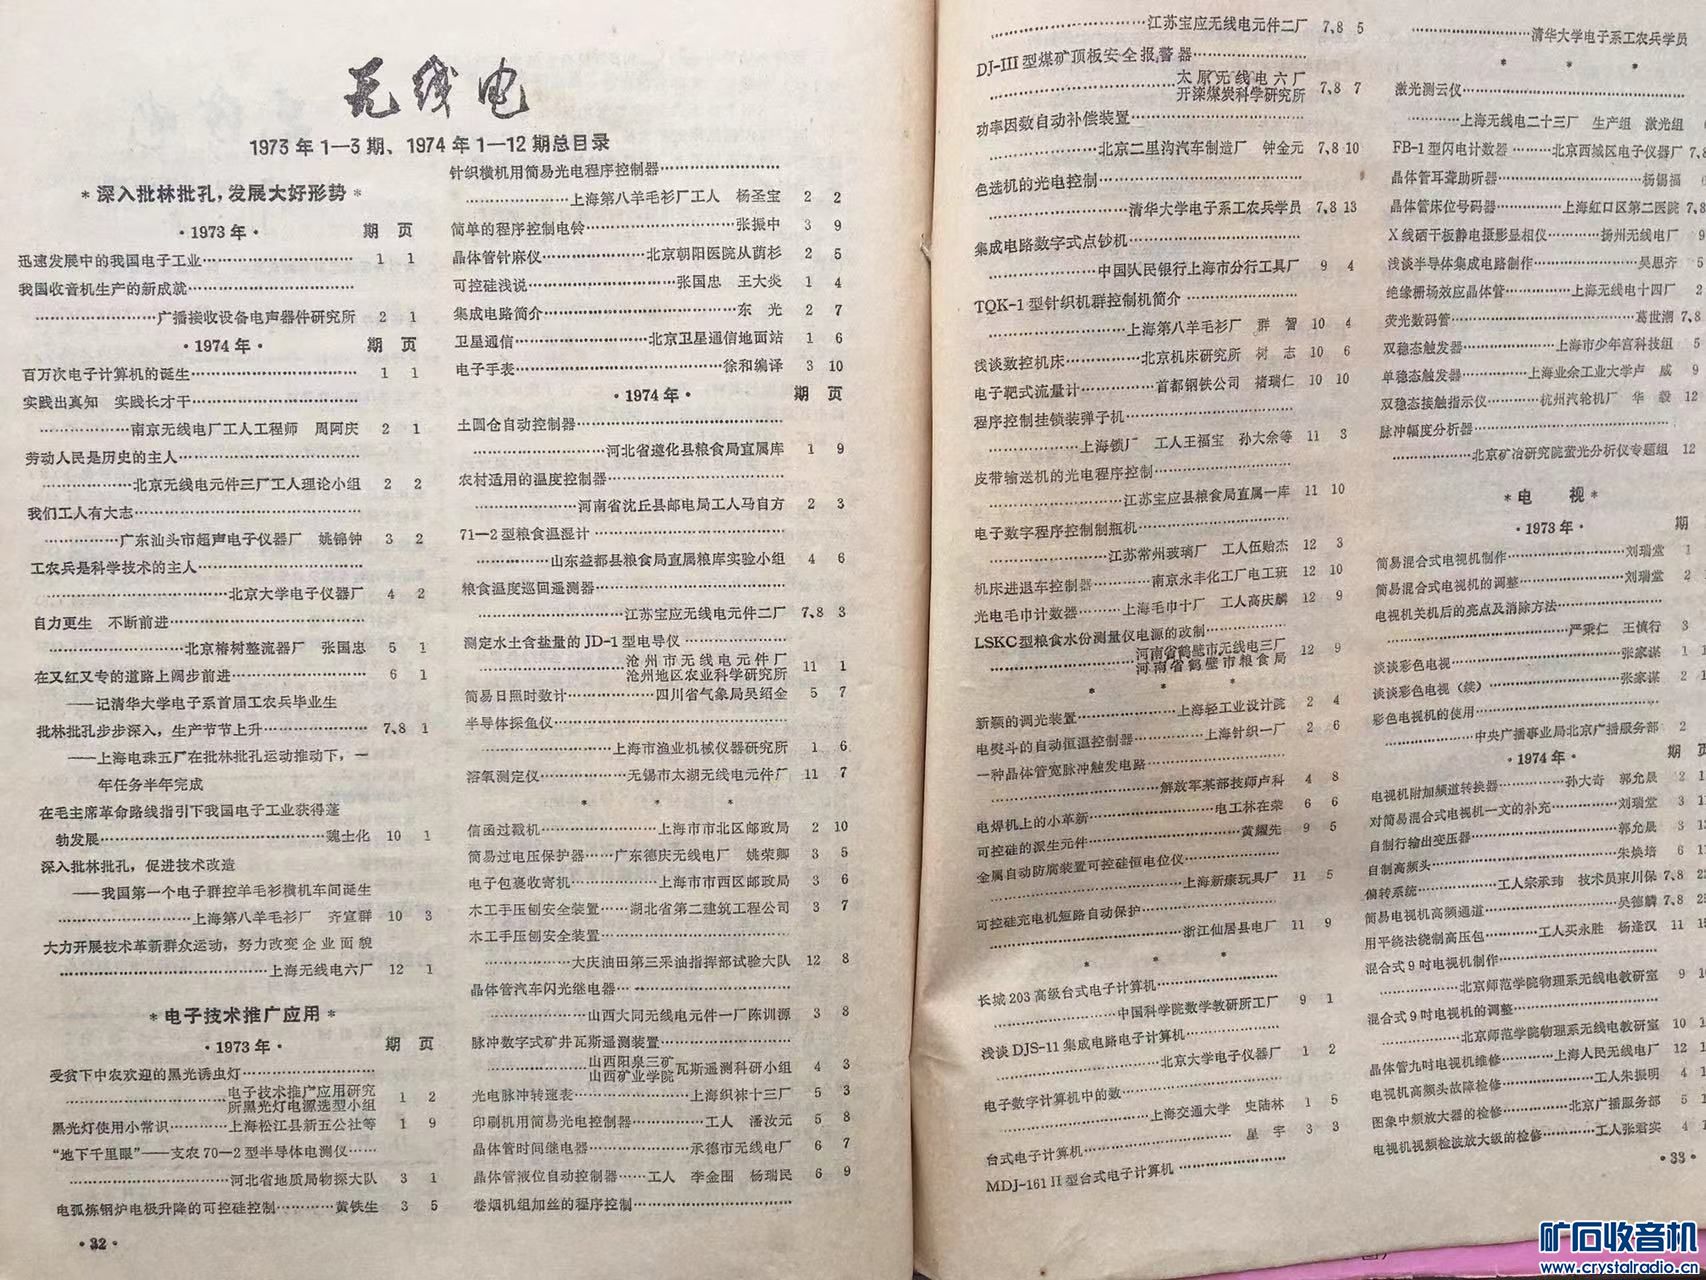 无线电
1973年1—3期、1974年1—12期总目录
*深入批林批孔，发展大好形势*
·1973年· 期 页
迅速发展中的我国电子工业………………… 1 1
我国收音机生产的新成就……………………
………………广播接收设备电声器件研究所 2 1
·1974年· 期 页
百万次电子计算机的诞生…………………… 1 1
实践出真知 实践长才干……………………
……………南京无线电厂工人工程师 周阿庆 2 1
劳动人民是历史的主人………………………
……………北京无线电元件三厂工人理论小组 2 2
我们工人有大志………………………………
…………广东汕头市超声电子仪器厂 姚锦钟 3 2
工农兵是科学技术的主人……………………
………………………北京大学电子仪器厂 4 2
自力更生 不断前进…………………………
…………………北京椿树整流器厂 张国忠 5 1
在又红又专的道路上阔步前进……………… 6 1
——记清华大学电子系首届工农兵毕业生
批林批孔步步深入，生产节节上升………… 7,8 1
——上海电珠五厂在批林批孔运动推动下，一
年任务半年完成
在毛主席革命路线指引下我国电子工业获得蓬
勃发展………………………………魏士化 10 1
深入批林批孔，促进技术改造
——我国第一个电子群控羊毛衫横机车间诞生
………………上海第八羊毛衫厂 齐宣群 10 3
大力开展技术革新群众运动，努力改变企业面貌
…………………………上海无线电六厂 12 1
*电子技术推广应用*
·1973年· 期 页
受贫下中农欢迎的黑光诱虫灯………………
……………………电子技术推广应用研究
所黑光灯电源选型小组 1 2
黑光灯使用小常识…………上海松江县新五公社等 1 9
“地下千里眼”——支农70—2型半导体电测仪……
……………………河北省地质局物探大队 3 1
电弧炼钢炉电极升降的可控硅控制…………黄铁生 3 5
·32·
针织横机用简易光电程序控制器………………
……………上海第八羊毛衫厂工人 杨圣宝 2 2
简单的程序控制电铃……………………张振中 3 9
晶体管针麻仪……………北京朝阳医院从荫杉 2 5
可控硅浅说………………………张国忠 王大炎 1 4
集成电路简介……………………………东 光 2 7
卫星通信………………北京卫星通信地面站 1 6
电子手表……………………………徐和编译 3 10
·1974年· 期 页
土圆仓自动控制器……………………………
………………河北省遵化县粮食局直属库 1 9
农村适用的温度控制器………………………
……………河南省沈丘县邮电局工人马自方 2 3
71—2型粮食温湿计…………………………
…………山东益都县粮食局直属粮库实验小组 4 6
粮食温度巡回遥测器…………………………
…………………江苏宝应无线电元件二厂 7,8 3
测定水土含盐量的JD-1型电导仪……………
……………………沧州市无线电元件厂
沧州地区农业科学研究所 11 1
简易日照时数计……………四川省气象局吴绍金 5 7
半导体探鱼仪…………………………………
………………上海市渔业机械仪器研究所 1 6
溶氧测定仪……………无锡市太湖无线电元件厂 11 7
* * *
信函过戳机…………………上海市市北区邮政局 2 10
简易过电压保护器……广东德庆无线电厂 姚荣卿 3 5
电子包裹收寄机……………上海市市西区邮政局 3 6
木工手压刨安全装置……湖北省第二建筑工程公司 3 7
木工手压刨安全装置…………………………
……………大庆油田第三采油指挥部试验大队 12 8
晶体管汽车闪光继电器………………………
………………山西大同无线电元件一厂陈训源 3 8
脉冲数字式矿井瓦斯遥测装置………………
………………山西阳泉三矿
山西矿业学院瓦斯遥测科研小组 4 3
光电脉冲转速表…………………上海织袜十三厂 5 3
印刷机用简易光电控制器…………工人 潘汝元 5 8
晶体管时间继电器………………承德市无线电厂 6 7
晶体管液位自动控制器……工人 李金囤 杨瑞民 6 9
卷烟机组加丝的程序控制……………………
………………江苏宝应无线电元件二厂 7,8 5
DJ-III型煤矿顶板安全报警器………………
……………………太原无线电六厂
开滦煤炭科学研究所 7,8 7
功率因数自动补偿装置………………………
………………北京二里沟汽车制造厂 钟金元 7,8 10
色选机的光电控制……………………………
…………………清华大学电子系工农兵学员 7,8 13
集成电路数字式点钞机………………………
………………中国人民银行上海市分行工具厂 9 4
TQK-1型针织机群控制机简介………………
…………………上海第八羊毛衫厂 群 智 10 4
浅谈数控机床……………北京机床研究所 树 志 10 6
电子靶式流量计…………首都钢铁公司 褚瑞仁 10 10
程序控制挂锁装弹子机………………………
……………上海锁厂 工人王福宝 孙大余等 11 3
皮带输送机的光电程序控制…………………
…………………江苏宝应县粮食局直属一库 11 10
电子数字程序控制制瓶机……………………
………………江苏常州玻璃厂 工人伍贻杰 12 3
机床进退车控制器………南京永丰化工厂电工班 12 10
光电毛巾计数器……上海毛巾十厂 工人高庆麟 12 9
LSKC型粮食水份测量仪电源的改制…………
……………………河南省鹤壁市无线电三厂
河南省鹤壁市粮食局 12 9
* * *
新颖的调光装置………………上海轻工业设计院 2 4
电熨斗的自动恒温控制器…………上海针织一厂 2 6
一种晶体管宽脉冲触发电路…………………
……………………………解放军某部技师卢科 4 8
电焊机上的小革新…………………电工林在荣 6 6
可控硅的派生元件……………………黄耀先 9 5
金属自动防腐装置可控硅恒电位仪…………
…………………………上海新康玩具厂 11 5
可控硅充电机短路自动保护…………………
…………………………浙江仙居县电厂 11 9
* * *
长城203高级台式电子计算机………………
………………中国科学院数学教研所工厂 9 1
浅谈DJS-11集成电路电子计算机……………
…………………………北京大学电子仪器厂 1 2
电子数字计算机中的数………………………
……………………上海交通大学 史陆林 1 5
台式电子计算机……………………星 宇 3 3
MDJ-161II型台式电子计算机………………
………………清华大学电子系工农兵学员
* * *
激光测云仪……………………………………
…………上海无线电二十三厂 生产组 激光组
FB-1型闪电计数器………北京西城区电子仪器厂 7,8
晶体管耳聋助听器……………………杨锡福
晶体管床位号码器…………上海虹口区第二医院 7,8
X线硒干板静电摄影显相仪…………扬州无线电厂 9
浅谈半导体集成电路制作………………吴思齐 5
绝缘栅场效应晶体管…………上海无线电十四厂 2
荧光数码管………………………………葛世潮 7,8
双稳态触发器……………上海市少年宫科技组 5
单稳态触发器…………上海业余工业大学卢 威 9
双稳态接触指示仪………杭州汽轮机厂 华 毅 12
脉冲幅度分析器………………………………
……………北京矿冶研究院萤光分析仪专题组 12
*电 视*
·1973年· 期
简易混合式电视机制作………………刘瑞堂 1
简易混合式电视机的调整……………刘瑞堂 2
电视机关机后的亮点及消除方法……………
…………………………严秉仁 王慎行 3
谈谈彩色电视…………………………张家谋 1
谈谈彩色电视（续）…………………张家谋 2
彩色电视机的使用……………………………
……………中央广播事业局北京广播服务部 2
·1974年· 期 页
电视机附加频道转换器………孙大奇 郭允晟 2
对简易混合式电视机一文的补充………刘瑞堂 3
自制行输出变压器……………………郭允晟 3
自制高频头……………………………朱焕培 6
偏转系统……………工人宗承玮 技术员束川保 7,8
简易电视机高频通道…………………吴德麟 7,8
用平绕法绕制高压包………工人买永胜 杨逢汉 11
混合式9吋电视机制作………………………
……………北京师范学院物理系无线电教研室 9
混合式9吋电视机的调整……………………
……………北京师范学院物理系无线电教研室 10
晶体管九吋电视机维修………上海人民无线电厂 12
电视机高频头故障检修……………工人朱振明 4
图象中频放大器的检修…………北京广播服务部 5
电视机视频检波放大级的检修………工人张君实 4
·33·
矿石收音机
www.crystalradio.cn